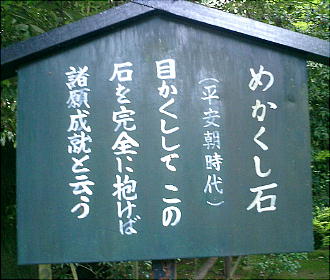 めかくし石
(平安朝時代)
目かくしして この
石を完全に抱けば
諸願成就と云う